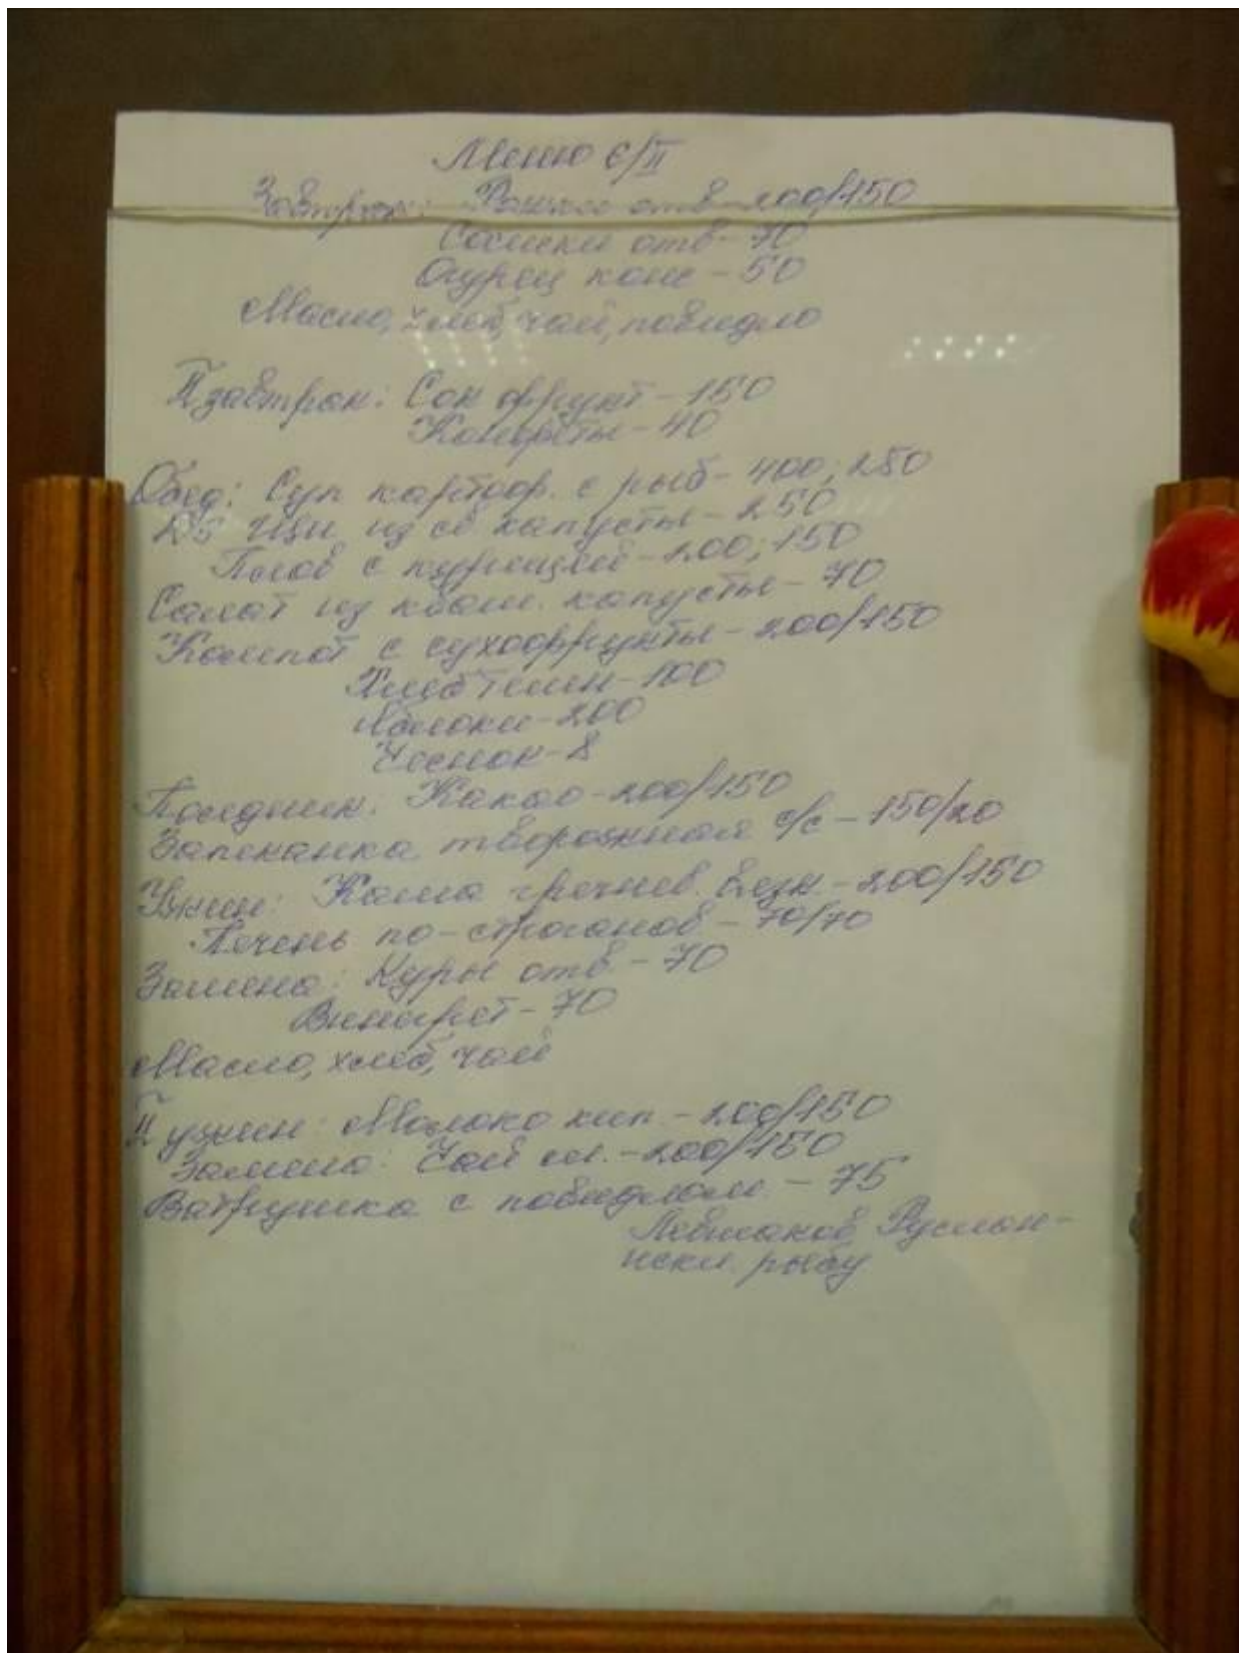 Меню 6/II
Завтрак: Рожки отв - 200/150
Сосиски отв - 70
Огурец конс - 50
Масло, хлеб, чай, повидло
II завтрак: Сок фрукт - 150
Конфеты - 40
Обед: Суп картоф. с рыб - 400; 250
Щи из св капусты - 250
Плов с курицей - 200; 150
Салат из кваш. капусты - 70
Компот с сухофрукты - 200/150
Хлеб темн - 100
Яблоки - 200
Чеснок - 8
Полдник: Какао - 200/150
Запеканка творожная с/с - 150/20
Ужин: Каша гречнев. вязк - 200/150
Печень по-строганов - 70/70
Замена: Куры отв - 70
Винегрет - 70
Масло, хлеб, чай
II ужин: Молоко кип. - 200/150
Замена: Чай сл. - 200/150
Ватрушка с повидлом - 75
рыбу